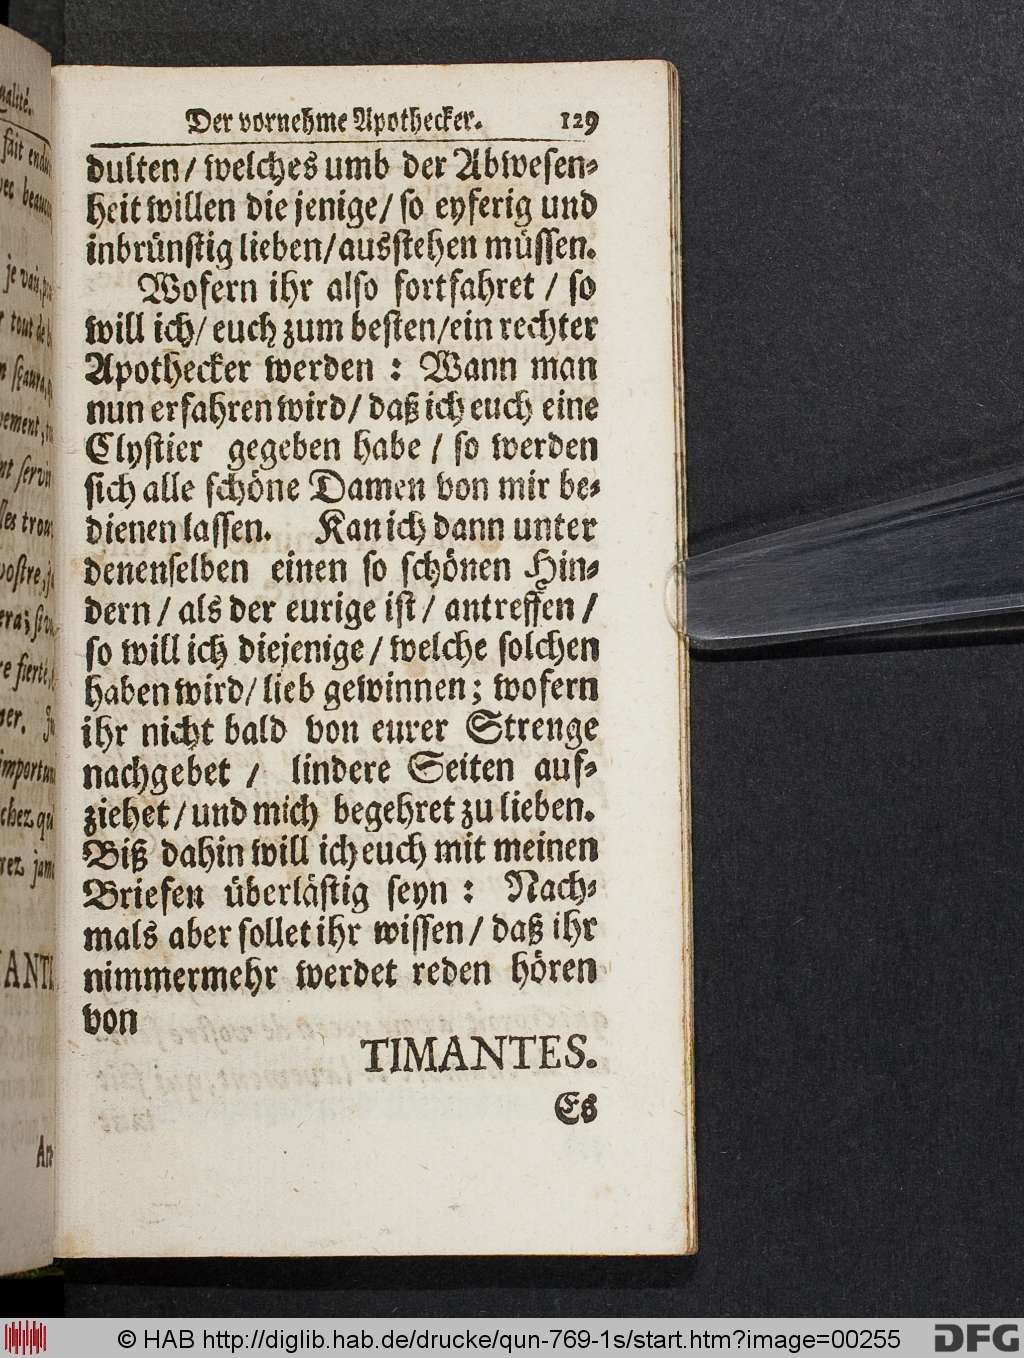 Der vornehme Apothecker. 129
dulten / welches umb der Abwesen-
heit willen die jenige / so eyferig und
inbrünstig lieben / ausstehen müssen.
Wofern ihr also fortfahret / so
will ich / euch zum besten / ein rechter
Apothecker werden : Wann man
nun erfahren wird / daß ich euch eine
Clystier gegeben habe / so werden
sich alle schöne Damen von mir be-
dienen lassen. Kan ich dann unter
denenselben einen so schönen Hin-
dern / als der eurige ist / antreffen /
so will ich diejenige / welche solchen
haben wird / lieb gewinnen ; wofern
ihr nicht bald von eurer Strenge
nachgebet / lindere Seiten auf-
ziehet / und mich begehret zu lieben.
Biß dahin will ich euch mit meinen
Briefen überlästig seyn : Nach-
mals aber sollet ihr wissen / daß ihr
nimmermehr werdet reden hören
von
TIMANTES.
Es
© HAB http://diglib.hab.de/drucke/qun-769-1s/start.htm?image=00255
DFG